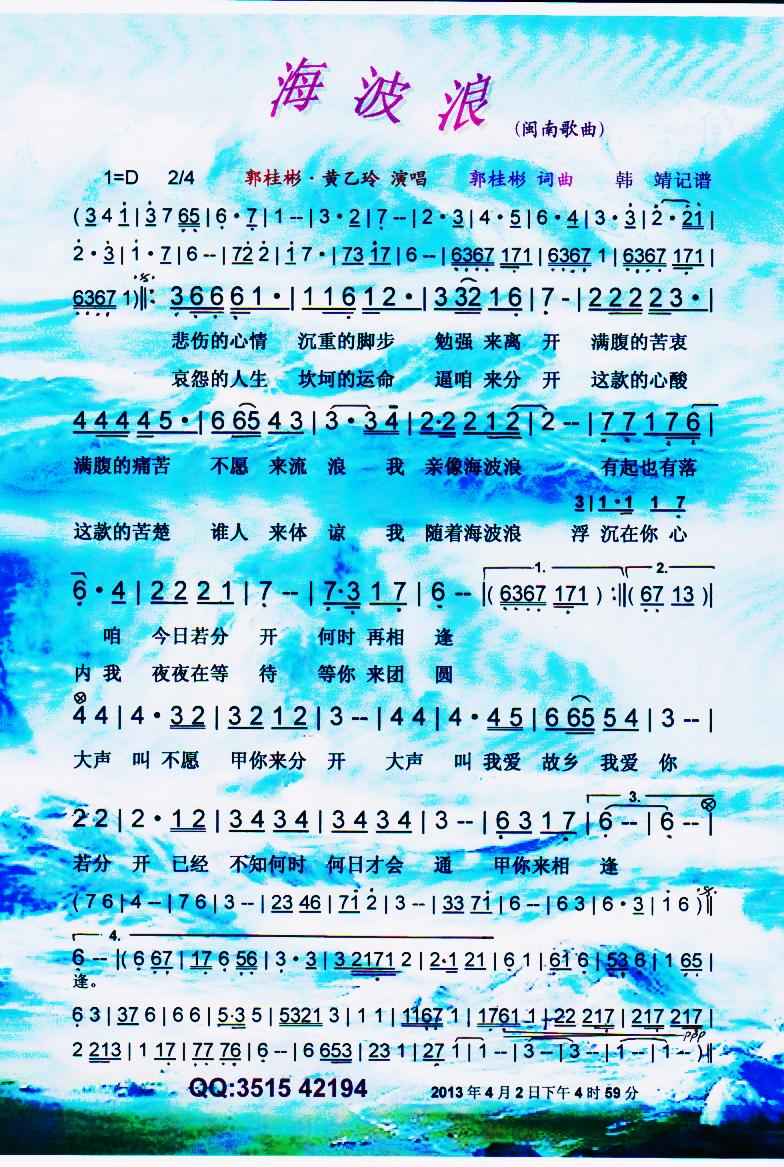 海波浪
(闽南歌曲)
1=D 2/4 郭桂彬·黄乙玲 演唱 郭桂彬 词曲 韩 靖记谱
( 3 4 1 | 3 7 65 | 6 · 7 | 1 -- | 3 · 2 | 7 -- | 2 · 3 | 4 · 5 | 6 · 4 | 3 · 3 | 2 · 21 |
2 · 3 | 1 · 7 | 6 -- | 72 2 | 1 7 · | 73 17 | 6 -- | 6367 171 | 6367 1 | 6367 171 |
6367 1 ) ‖: 3 6 6 6 1 · | 1 1 6 1 2 · | 3 32 1 6 | 7 - | 2 2 2 2 3 · |
悲伤的心情 沉重的脚步 勉强 来离 开 满腹的苦衷
哀怨的人生 坎坷的运命 逼咱 来分 开 这款的心酸
4 4 4 4 5 · | 6 65 4 3 | 3 · 3 4 | 2·2 2 1 2 | 2 -- | 7 7 1 7 6 |
满腹的痛苦 不愿 来流 浪 我 亲像海波浪 有起也有落
3 | 1 · 1 1 7
这款的苦楚 谁人 来体 谅 我 随着海波浪 浮 沉在你 心
6 · 4 | 2 2 2 1 | 7 -- | 7·3 1 7 | 6 -- |( 6367 171 ) :‖( 67 13 )|
1. 2.
咱 今日若分 开 何时 再相 逢
内 我 夜夜在等 待 等你 来团 圆
4 4 | 4 · 3 2 | 3 2 1 2 | 3 -- | 4 4 | 4 · 4 5 | 6 65 5 4 | 3 -- |
大声 叫 不愿 甲你来分 开 大声 叫 我爱 故乡 我爱 你
2 2 | 2 · 1 2 | 3 4 3 4 | 3 4 3 4 | 3 -- | 6 3 1 7 | 6 -- | 6 -- |
3.
若分 开 已经 不知何时 何日才会 通 甲你来相 逢
( 7 6 | 4 -- | 7 6 | 3 -- | 23 46 | 71 2 | 3 -- | 33 71 | 6 -- | 6 3 | 6 · 3 | 1 6 )‖
4.
6 -- |( 6 67 | 17 6 56 | 3 · 3 | 3 2171 2 | 2·1 21 | 6 1 | 61 6 | 53 6 | 1 65 |
逢。
6 3 | 37 6 | 6 6 | 5·3 5 | 5321 3 | 1 1 | 1167 1 | 1761 1 | 22 217 | 217 217 |
ppp
2 213 | 1 17 | 77 76 | 6 -- | 6 653 | 23 1 | 27 1 | 1 -- | 3 -- | 3 -- | 1 -- | 1 -- )‖
QQ:3515 42194 2013 年 4 月 2 日下午 4 时 59 分